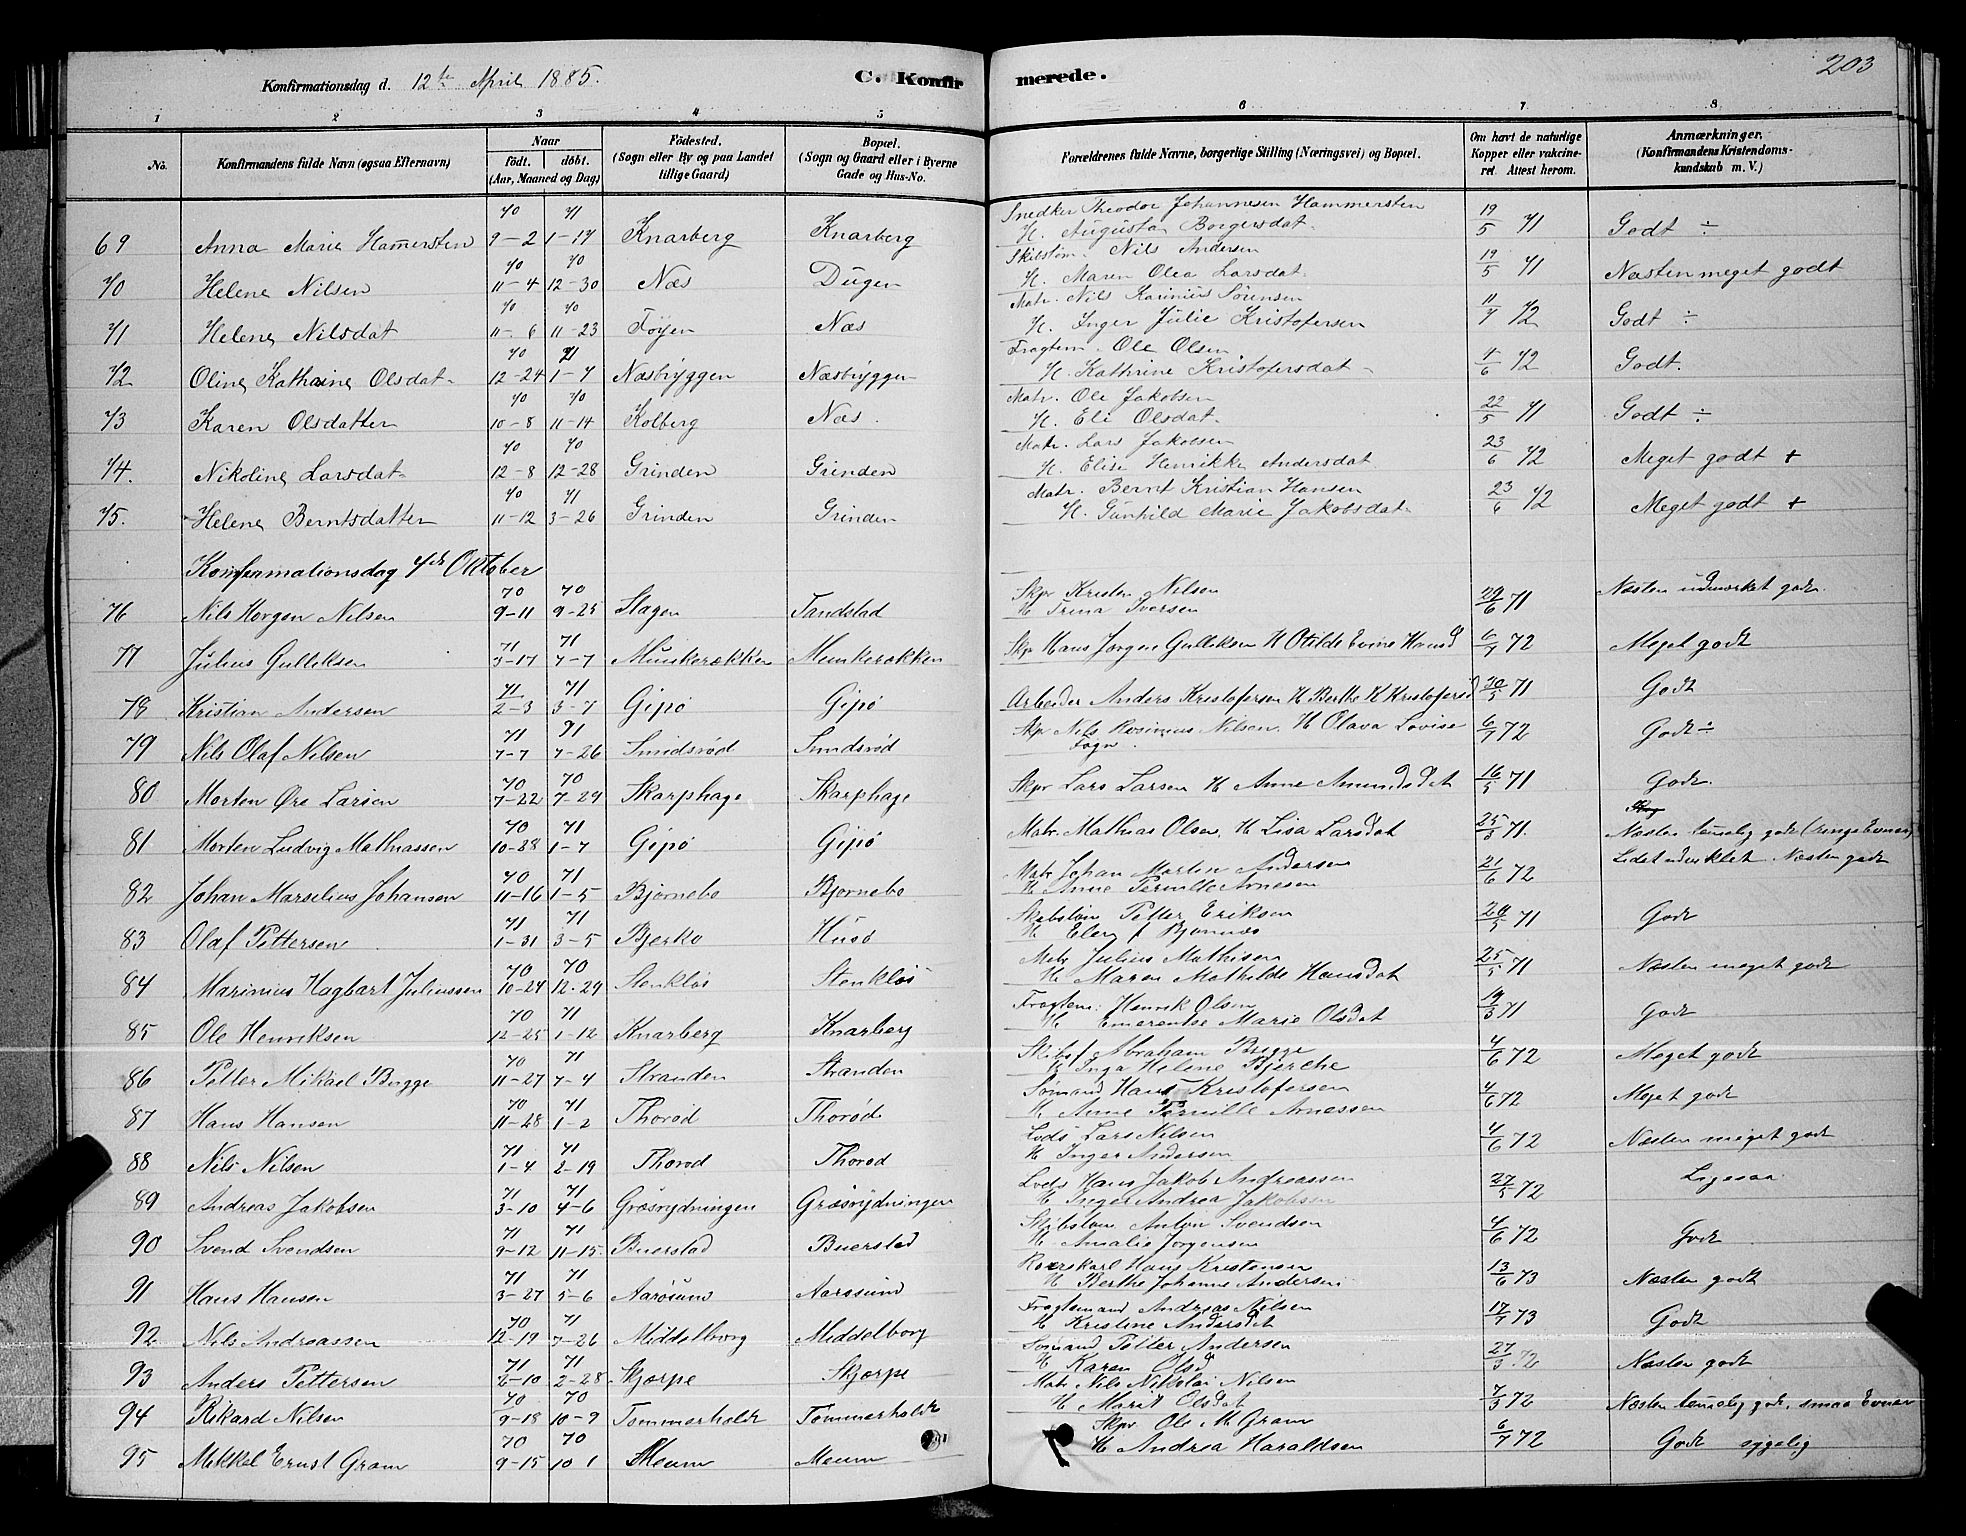 203
Konfirmationsdag d. 12te April 1885. C. Konfirmerede.
1 2 3 4 5 6 7 8
No. Konfirmandens fulde Navn (ogsaa Efternavn) Naar født. døbt. (Aar, Maaned og Dag) Födested. (Sogn eller By og paa Landet tillige Gaard) Bopæl. (Sogn og Gaard eller i Byerne Gade og Hus-No. Forældrenes fulde Navne, borgerlige Stilling (Næringsvei) og Bopæl. Om havt de naturlige Kopper eller vakcineret. Attest herom. Anmærkninger. (Konfirmandens Kristendomskundskab m. V.)
69 Anna Marie Hamersten 70 9-2 71 1-17 Knarberg Knarberg Snedker Theodor Johannesen Hammersten H. Augusta Borgersdat. 19/5 71 Godt ÷
70 Helene Nilsen 70 11-4 70 12-30 Næs Dugen Skibstøm. Nils Andersen H. Maren Olea Larsdat. 19/5 71 Næsten meget godt
71 Helene Nilsdat 70 11-6 70 11-23 Føyen Næs Matr. Nils Karinius Sörensen H. Inger Julie Kristofersen 11/7 72 Godt ÷
72 Oline Kathrine Olsdat. 70 12-24 71 1-7 Næsbryggen Næsbryggen Fragtem. Ole Olsen H. Kathrine Kristofersdat 4/6 72 Godt.
73 Karen Olsdatter 70 10-8 70 11-14 Kolberg Næs. Matr. Ole Jakobsen H. Eli Olsdat. 22/5 71 Godt ÷
74. Nikoline Larsdat. 70 12-8 70 12-28 Grinden Grinden Matr. Lars Jakobsen H. Elise Henrikke Andersdat 23/6 72 Meget godt +
75. Helene Berntsdatter 70 11-12 71 3-26 Grinden Grinden Matr. Bernt Kristian Hansen H. Gunhild Marie Jakobsdat. 23/6 72 Meget godt +
Konfirmationsdag 4de Oktober
76 Nils Horgen Nilsen 70 9-11 70 9-25 Slagen Tandstad Skpr Kristen Nilsen H Trina Iversen 29/6 71 Næsten udmerket godt.
77 Julius Gulliksen 71 3-17 71 7-7 Munkerækken Munkerækken Skpr Hans Jørgen Gulliksen H Otilde Evine Hansd 6/7 72 Meget godt
78 Kristian Andersen 71 2-3 71 3-7 Gipø Gipø Arbeider Anders Kristofersen H Berthe K Kristofersd 30/5 71 Godt
79 Nils Olaf Nilsen 71 7-7 71 7-26 Smidsrød Smidsrød Skpr Nils Rosinius Nilsen. H Olava Lovise Fogn. 6/7 72 Godt ÷
80 Morten Øre Larsen 70 7-22 70 7-29 Skarphage Skarphage Skpr Lars Larsen H Anne Amundsdat 16/5 71 Godt.
81 Morten Ludvig Mathiassen 70 10-28 71 1-7 Gipø Gipø Matr. Mathias Olsen. H Lisa Larsdat 25/3 71. Næsten temelig godt (ringe Evner)
82 Johan Marselius Johansen 70 11-16 71 1-5 Bjørnebo Bjørnebo Matr Johan Martin Andersen H Anne Pernille Arnesen 21/6 72 Lidet udviklet Næsten godt
83 Olaf Pettersen 71 1-31 71 3-5 Bjerko Husø Skibstøm Petter Eriksen H Elen f Bjønnes 20/5 71 Godt
84 Marinius Hagbart Juliussen 70 10-24 70 12-29 Stenkløs Stenkløs Matr Julius Mathisen H Maren Mathilde Hansdat 25/5 71 Næsten meget godt
85 Ole Henriksen 70 12-25 71 1-12 Knarberg Knarberg Fragtem: Henrik Olsen H Emerentse Marie Olsdat 19/3 71 Godt
86 Petter Mikael Bugge 70 11-27 71 7-4 Stranden Stranden Skibsf. Abraham Bugge H Inga Helene Bjerche 4/6 72 Meget godt
87 Hans Hansen 70 11-28 71 1-2 Thorød Thorød Sømand Hans Kristofersen H Anne Pernille Arnessen 4/6 72 Meget godt
88 Nils Nilsen 71 1-4 71 2-19 Thorød Thorød Lods Lars Nilsen H Inger Andersen 4/6 72 Næsten meget godt
89 Andreas Jakobsen 71 3-10 71 4-6 Græsrydningen Græsrydningen Lods Hans Jakob Andreassen H Inger Andrea Jakobsen 27/5 72 Ligesaa
90 Svend Svendsen 71 9-12 71 11-15 Buerstad Buerstad Skibstøm Anton Svendsen H Amalie Jørgensen 4/6 72 Godt
91 Hans Hansen 71 3-27 71 5-6 Aarøsund Aarøsund Roerskarl Hans Kristensen H Berthe Johanne Andersen 13/6 73 Næsten godt
92 Nils Andreassen 70 12-19 71 7-26 Middelborg Middelborg Fragtemand Andreas Nilsen H Kristine Andersdat 17/7 73 Godt
93 Anders Pettersen 71 2-10 71 2-28 Skjærpe Skjærpe Sømand Petter Andersen H Karen Olsd 27/3 72 Næsten godt
94 Rikard Nilsen 70 9-18 70 10-9 Tommerholdt Tommerholdt Matr Nils Nikolai Nilsen H Marit Olsdat 7/3 72 Næsten temelig godt. smaa Evner
95 Mikkel Ernst Gram 70 9-15 70 10 1 Meum Meum Skpr Ole M Gram H Andrea Haraldsen 6/7 72 Godt sygelig